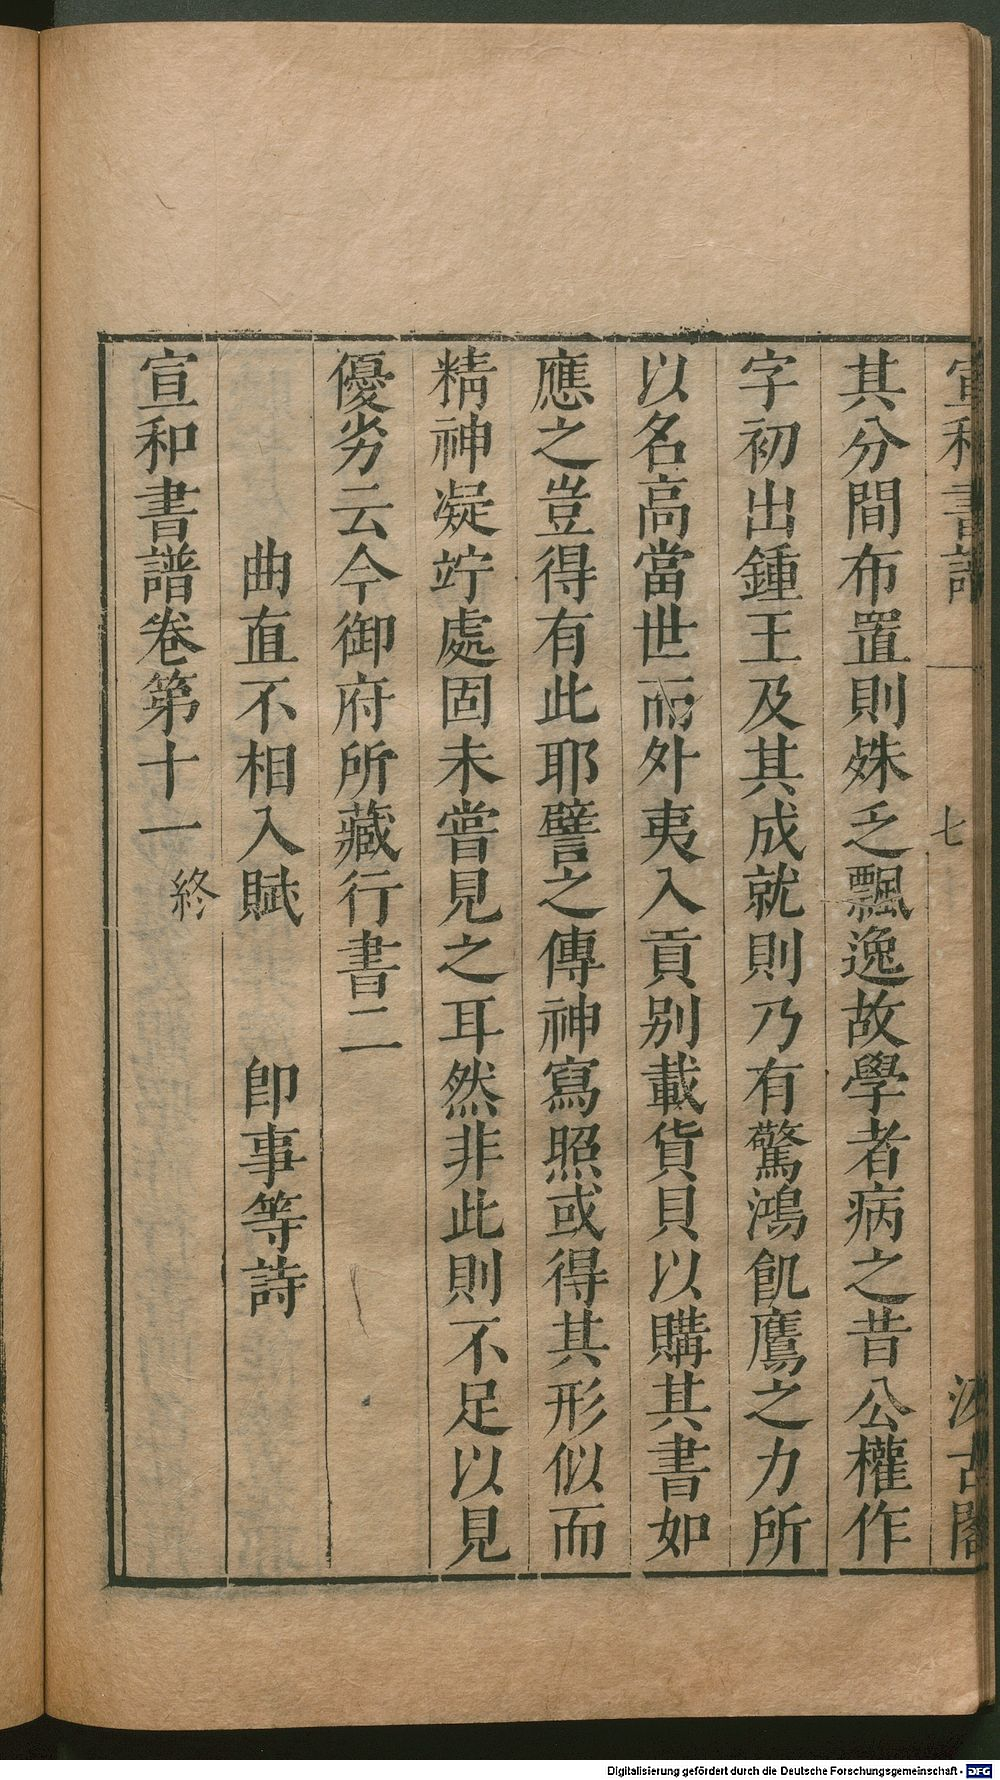 宣和書譜 七 汲古閣
其分間布置則殊乏飄逸故學者病之昔公權作
字初出鍾王及其成就則乃有驚鴻飢鷹之力所
以名高當世而外夷入貢別載貨貝以購其書如
應之豈得有此耶譬之傳神寫照或得其形似而
精神凝竚處固未嘗見之耳然非此則不足以見
優劣云今御府所藏行書二
曲直不相入賦 即事等詩
宣和書譜卷第十一終
Digitalisierung gefördert durch die Deutsche Forschungsgemeinschaft - DFG